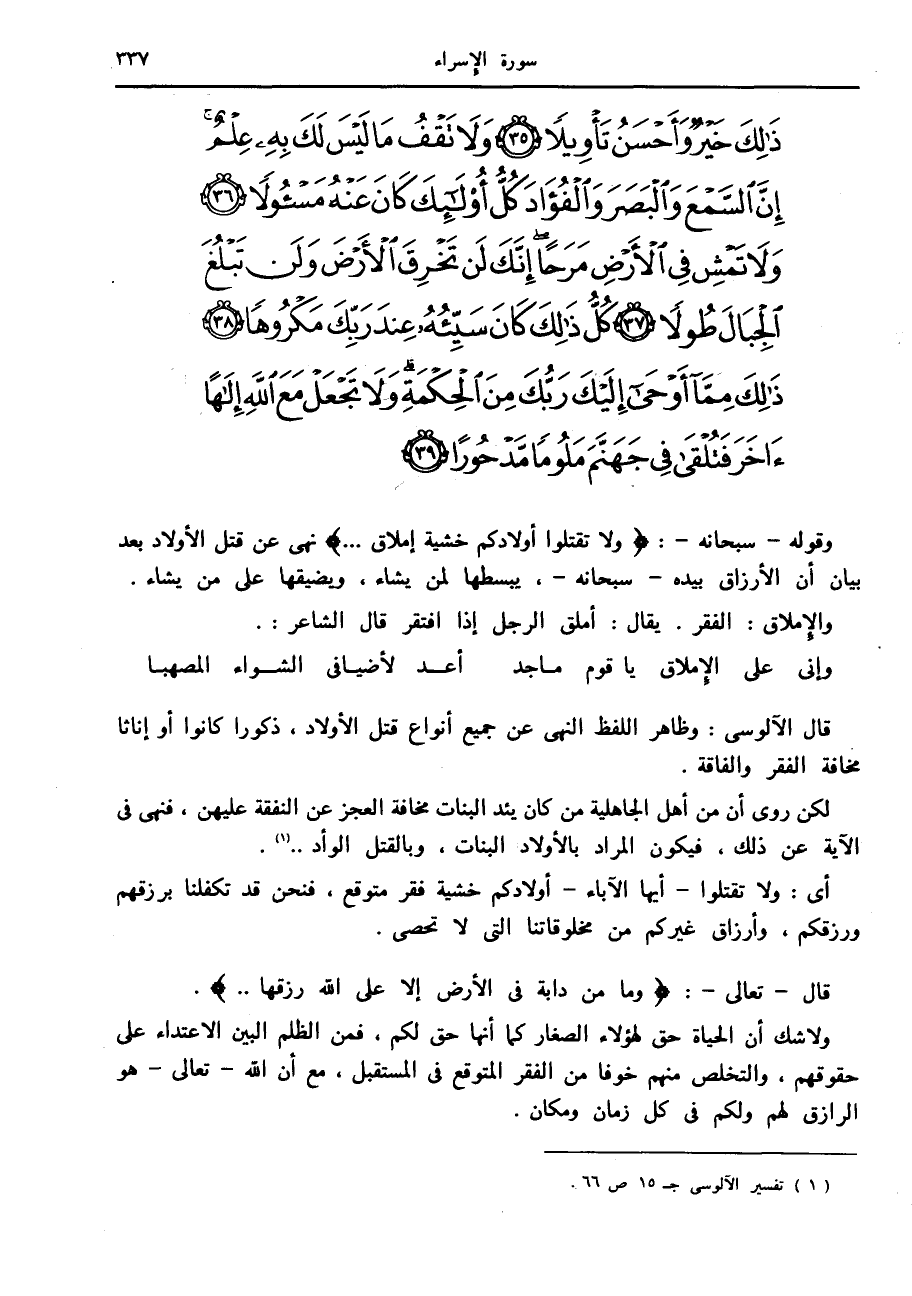 سورة الإسراء ٣٣٧
ذَٰلِكَ خَيْرٌ وَأَحْسَنُ تَأْوِيلًا ٣٥ وَلَا تَقْفُ مَا لَيْسَ لَكَ بِهِۦ عِلْمٌ ۚ
إِنَّ ٱلسَّمْعَ وَٱلْبَصَرَ وَٱلْفُؤَادَ كُلُّ أُو۟لَٰٓئِكَ كَانَ عَنْهُ مَسْـُٔولًا ٣٦
وَلَا تَمْشِ فِى ٱلْأَرْضِ مَرَحًا ۖ إِنَّكَ لَن تَخْرِقَ ٱلْأَرْضَ وَلَن تَبْلُغَ
ٱلْجِبَالَ طُولًا ٣٧ كُلُّ ذَٰلِكَ كَانَ سَيِّئُهُۥ عِندَ رَبِّكَ مَكْرُوهًا ٣٨
ذَٰلِكَ مِمَّآ أَوْحَىٰٓ إِلَيْكَ رَبُّكَ مِنَ ٱلْحِكْمَةِ ۗ وَلَا تَجْعَلْ مَعَ ٱللَّهِ إِلَٰهًا
ءَاخَرَ فَتُلْقَىٰ فِى جَهَنَّمَ مَلُومًا مَّدْحُورًا ٣٩
وقوله - سبحانه - : ﴿ ولا تقتلوا أولادكم خشية إملاق ...﴾ نهى عن قتل الأولاد بعد
بيان أن الأرزاق بيده - سبحانه - ، يبسطها لمن يشاء ، ويضيقها على من يشاء .
والإملاق : الفقر . يقال : أملق الرجل إذا افتقر قال الشاعر : .
وإنى على الإملاق يا قوم مـاجد أعـــد لأضيـافى الشـــواء المصهبـا
قال الآلوسى : وظاهر اللفظ النهى عن جميع أنواع قتل الأولاد ، ذكورا كانوا أو إناثا
مخافة الفقر والفاقة .
لكن روى أن من أهل الجاهلية من كان يئد البنات مخافة العجز عن النفقة عليهن ، فنهى فى
الآية عن ذلك ، فيكون المراد بالأولاد البنات ، وبالقتل الوأد ..(١) .
أى : ولا تقتلوا - أيها الآباء - أولادكم خشية فقر متوقع ، فنحن قد تكفلنا برزقهم
ورزقكم ، وأرزاق غيركم من مخلوقاتنا التى لا تحصى .
قال - تعالى - : ﴿ وما من دابة فى الأرض إلا على الله رزقها .. ﴾ .
ولاشك أن الحياة حق لهؤلاء الصغار كما أنها حق لكم ، فمن الظلم البين الاعتداء على
حقوقهم ، والتخلص منهم خوفا من الفقر المتوقع فى المستقبل ، مع أن الله - تعالى - هو
الرازق لهم ولكم فى كل زمان ومكان .
( ١ ) تفسير الآلوسى جـ ١٥ ص ٦٦ .